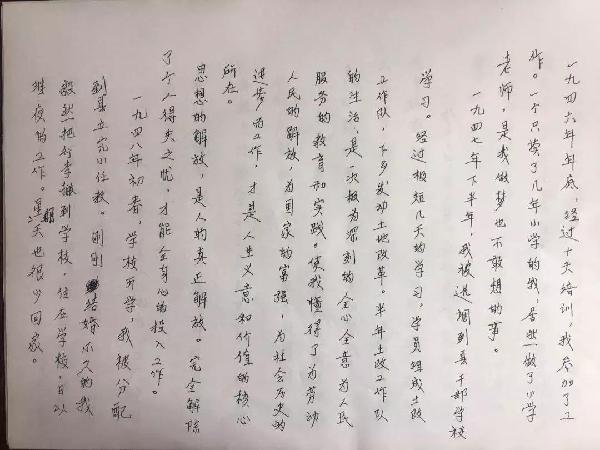 一九四六年年底，经过十天培训，我参加了工
作。一个只读了几年小学的我，居然做了小学
老师，是我做梦也不敢想的事。
一九四七年下半年，我被选调到县干部学校
学习。经过极短几天的学习，学员组成土改
工作队，下乡发动土地改革。半年土改工作队
的生活，是一次极为深刻的全心全意为人民
服务的教育和实践。使我懂得了为劳动
人民的解放，为国家的富强，为社会历史的
进步而工作，才是人生意义和价值的核心
所在。
思想的解放，是人的真正解放。完全解除
了个人得失之忧，才能全身心的投入工作。
一九四八年初春，学校开学，我被分配
到县立完小任教。刚刚结婚不久的我
毅然一把行李搬到学校，住在学校，日以
继夜的工作。星期天也很少回家。